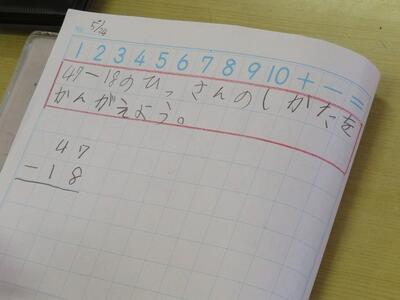 5/24
1 2 3 4 5 6 7 8 9 10 + - =
47-18のひっさんのしかたを
かんがえよう。
47
-18